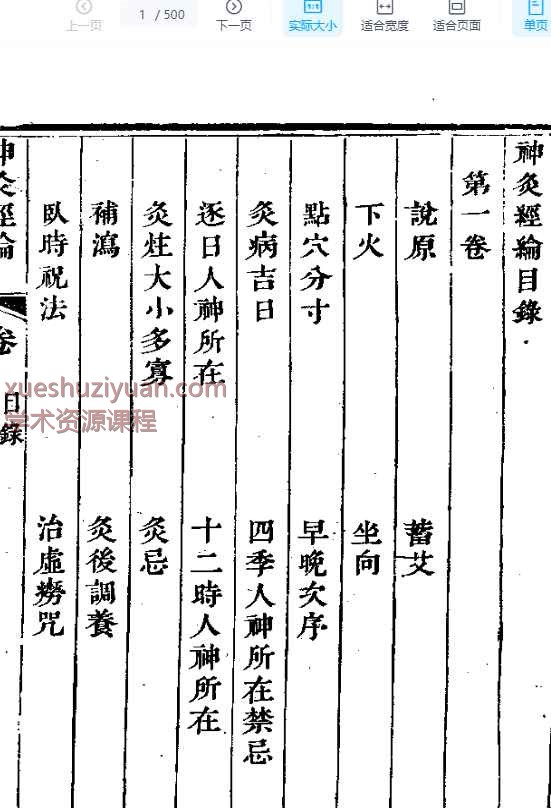 上一页
1 / 500
下一页
实际大小
适合宽度
适合页面
单页
神灸經綸目錄
第一卷
說原
蓄艾
下火
坐向
點穴分寸
早晚次序
灸病吉日
四季人神所在禁忌
逐日人神所在
十二時人神所在
灸炷大小多寡
灸忌
補瀉
灸後調養
臥時祝法
治虛癆咒
神灸經綸
卷
目錄
xueshuziyuan.com
学术资源课程